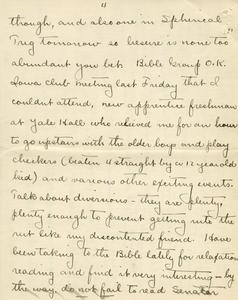 though, and also one in Spherical
Trig tomorrow so leisure is none too
abundant you bet. Bible Group O.K.
Iowa Club meeting last Friday that I
couldnt attend, new apprentice freshman
at Yale Hall who relieved me for an hour
to go upstairs with the older boys and play
checkers (beaten 4 straight by a 12 year old
kid) and various other exciting events.
Talk about diversions - they are plenty,
plenty enough to prevent getting into the
rut like my discontented friend. I have
been taking to the Bible lately for relaxation
reading and find it very interesting - by
the way, do not fail to read Senator